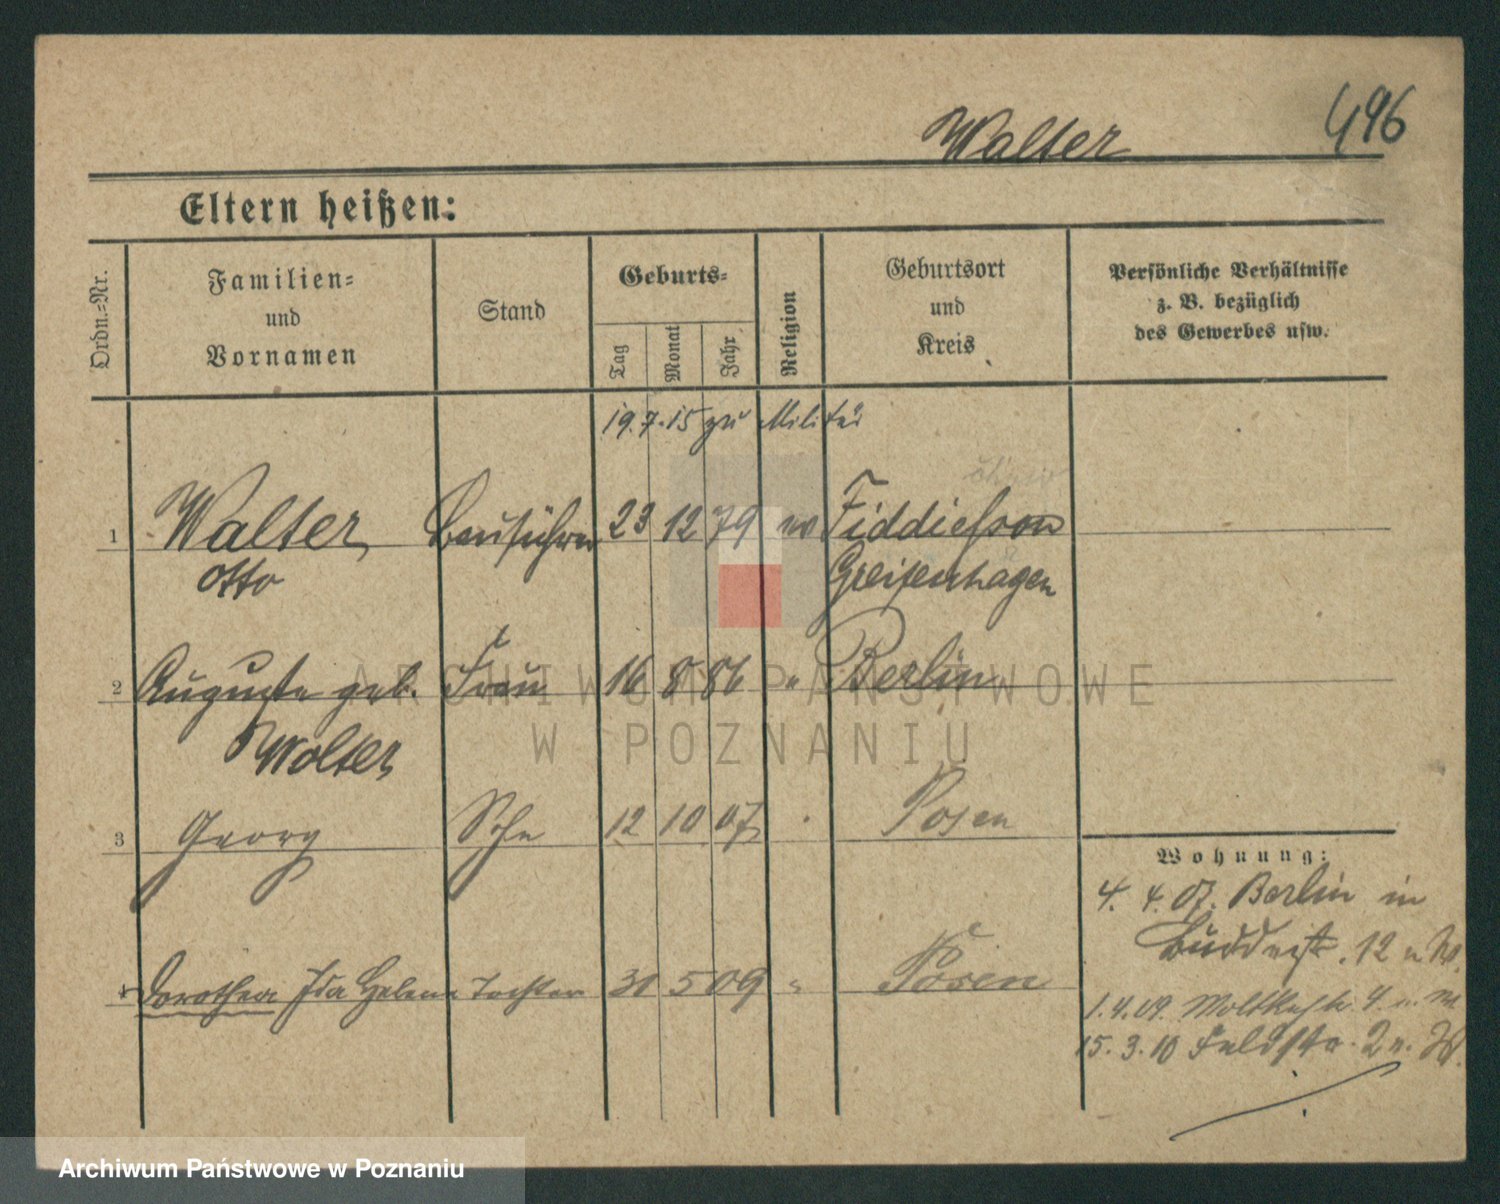 496
Walter
Eltern heißen:
Ordn.=Nr.
Familien=
und
Vornamen
Stand
Geburts=
Tag
Monat
Jahr
Religion
Geburtsort
und
Kreis
Persönliche Verhältnisse
z. B. bezüglich
des Gewerbes usw.
19.7.15 zu Militär
1 Walter Bauführer 23 12 79 ev Fiddichow
Otto Greifenhagen
2 Auguste geb. Frau 16 8 86 " Berlin
Wolter
3 Georg Sohn 12 10 07 Posen
Wohnung:
4. 4. 07. Berlin in
12
Dorothea Ida Helene Tochter 31 5 09 " Posen
1.4.09. Moltkestr. 4
15.3.10 Feldstr. 2
ARCHIWUM PAŃSTWOWE
W POZNANIU
Archiwum Państwowe w Poznaniu